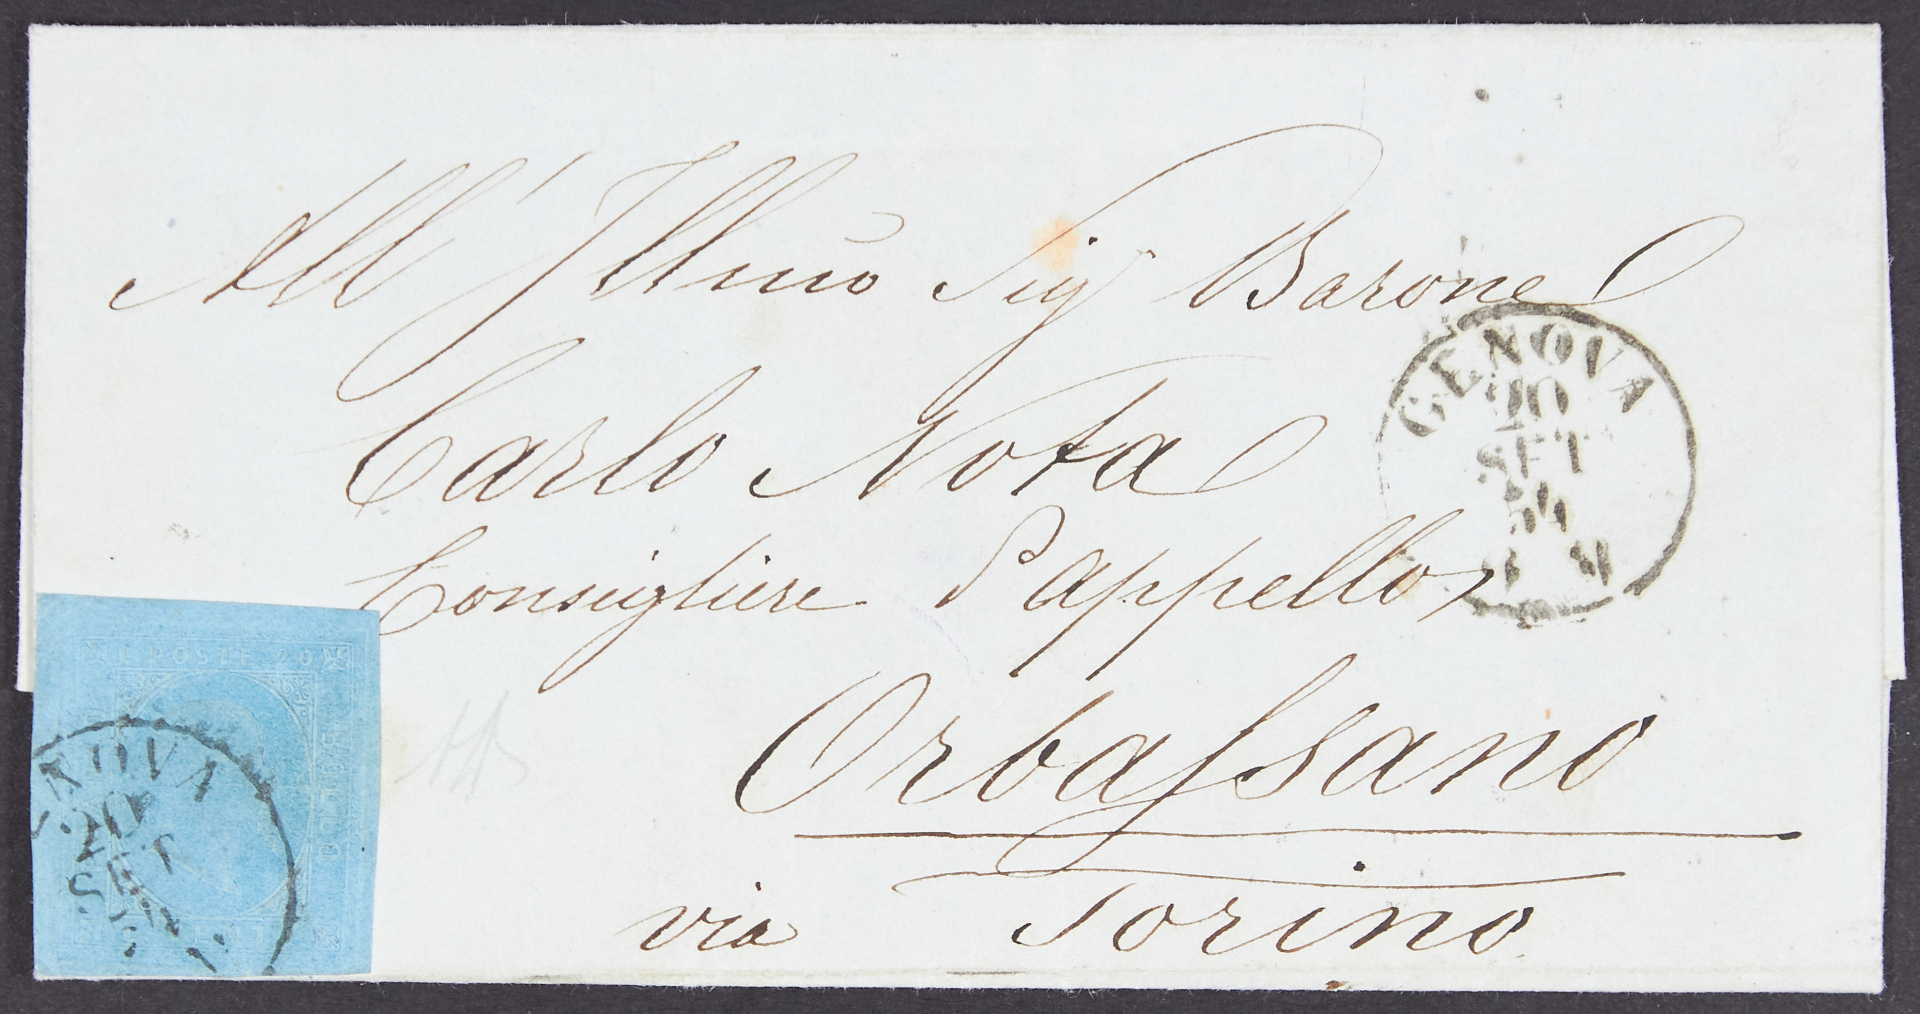 All' Illmo Sig Barone
Carlo Nota
Consigliere d'appello
Orbassano
via Torino
GENOVA
20
SET
54
POSTE 20
NOVA
20
SET